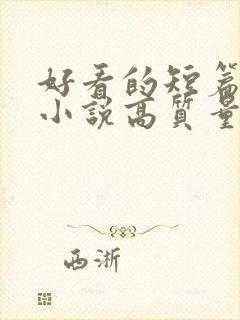 好看的短篇
小説高質量
西淅